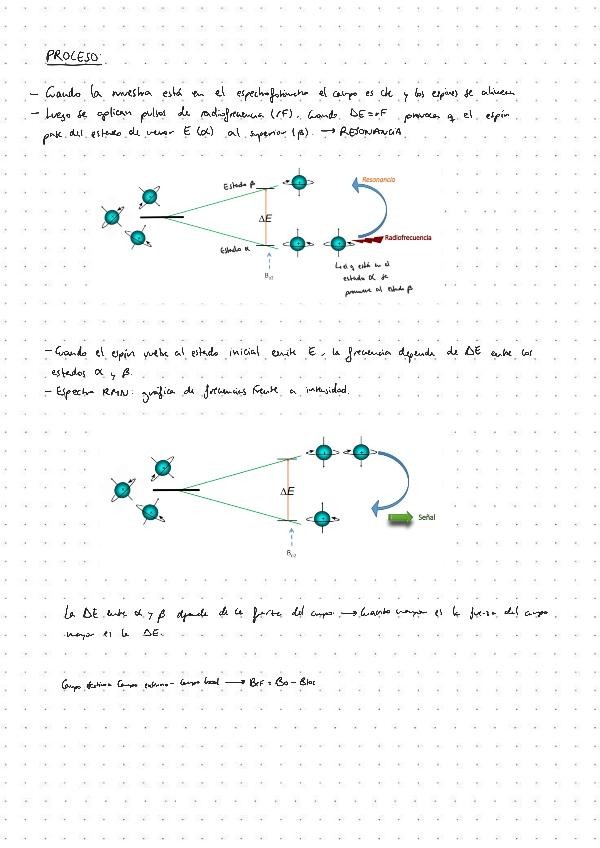 PROCESO:
- Cuando la muestra está en el espectrofotómetro el campo es cte y los espines se alinean
- Luego se aplican pulsos de radiofrecuencia (rF). Cuando ΔE=rF provoca q el espín
pase del estado de menor E (α) al superior (β). → RESONANCIA
Estado β
Resonancia
ΔE
Radiofrecuencia
Estado α
el q está en el
estado α se
promueve al estado β
- Cuando el espín vuelve al estado inicial emite E, la frecuencia depende de ΔE entre los
estados α y β.
- Espectro RMN: gráfica de frecuencias frente a intensidad.
ΔE
Señal
La ΔE entre α y β depende de la fuerza del campo → Cuanto mayor es la fuerza del campo
mayor es la ΔE.
Campo efectivo Campo externo - Campo local → Bef = B0 - Bloc